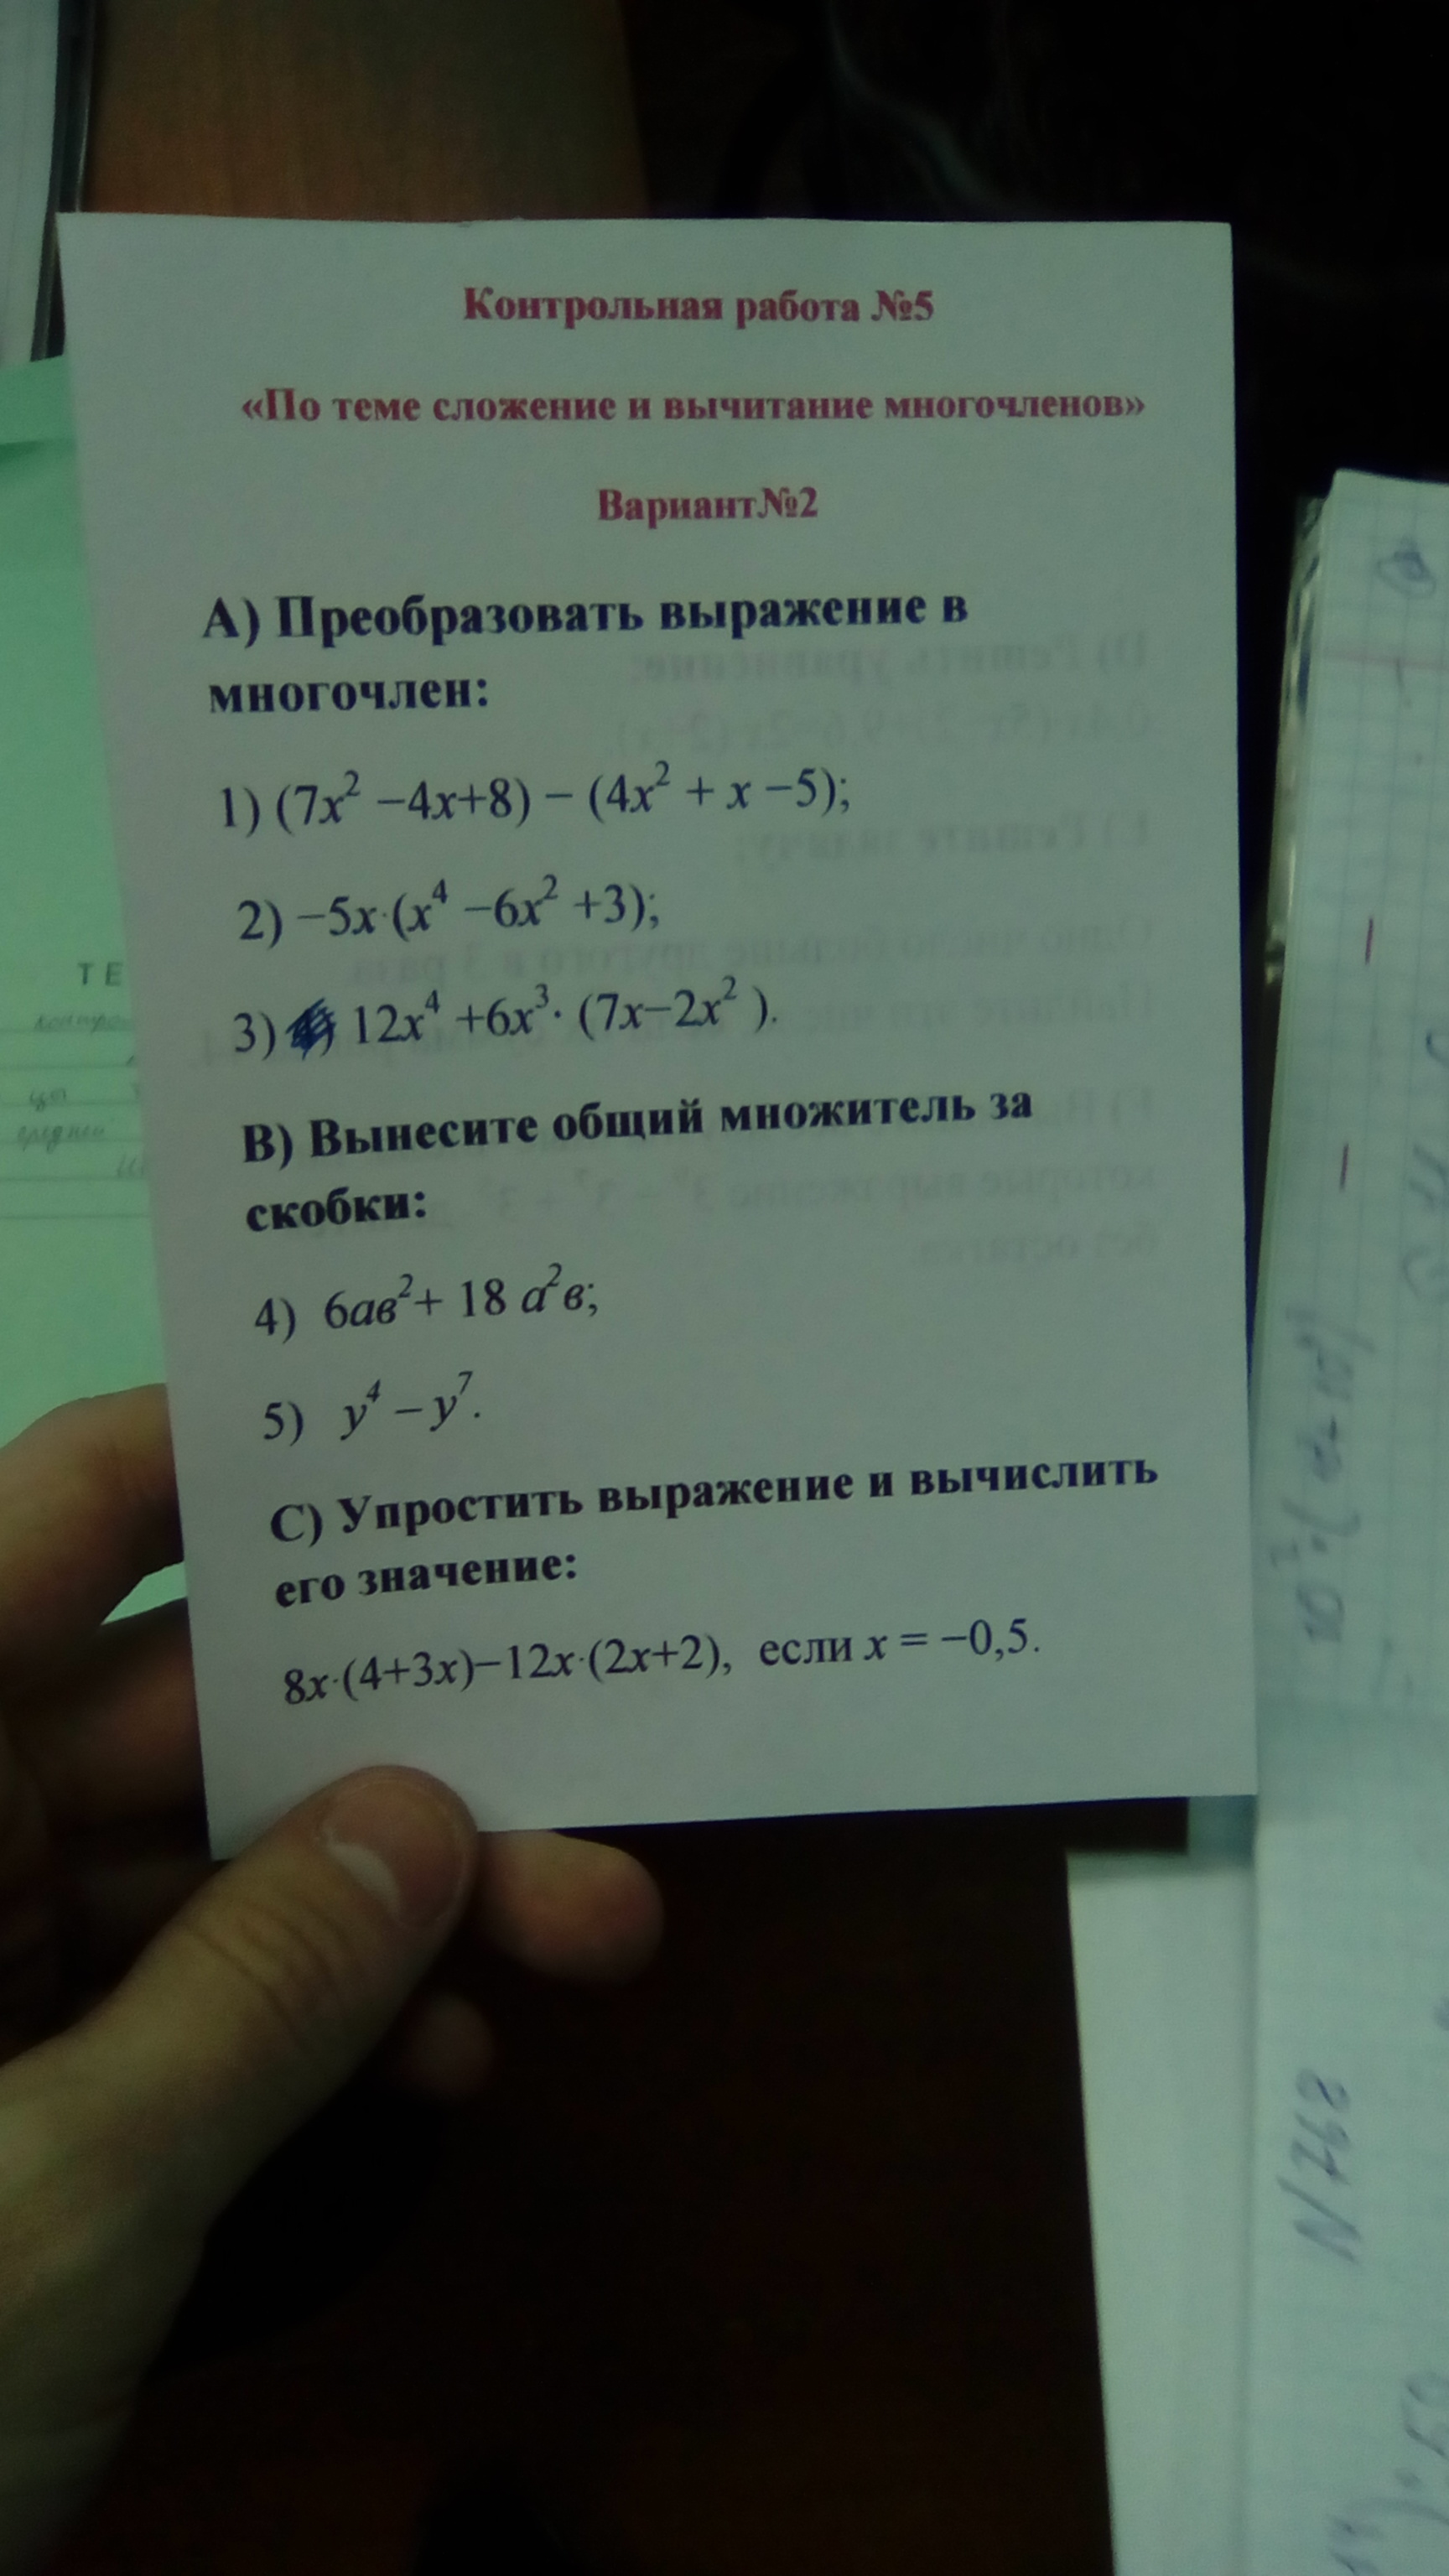 Контрольная работа №5
«По теме сложение и вычитание многочленов»
Вариант№2
А) Преобразовать выражение в
многочлен:
1) (7x² −4x+8) − (4x² + x −5);
2) −5x·(x⁴ −6x² +3);
3) 12x⁴ +6x³· (7x−2x² ).
В) Вынесите общий множитель за
скобки:
4) 6ав²+ 18 а²в;
5) y⁴ − y⁷.
С) Упростить выражение и вычислить
его значение:
8x·(4+3x)−12x·(2x+2), если x = −0,5.
ТЕ
N 768